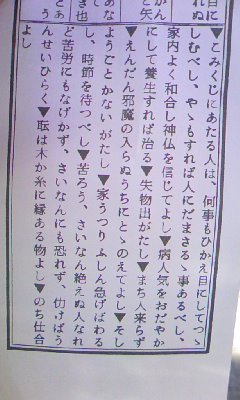 目に
れぬ
がん
と矢
あな
き也
とあ
う
▼こみくじにあたる人は、何事もひかえ目にしてつゝ
しむべし、やゝもすれば人にだまさるゝ事あるべし、
家内よく和合し神仏を信じてよし▼病人気をおだやか
にして養生すれば治る▼失物出がたし▼まち人来らず
▼えんだん邪魔の入らぬうちにとゝのえてよし▼そし
ようことかないがたし▼家うつりふしん急げばわる
し、時節を待つべし▼苦ろう、さいなん絶えぬ人なれ
ど苦労にもなげかず、さいなんにも恐れず、仂けばう
んせいひらく▼耺は木か糸に縁ある物よし▼のち仕合
よし